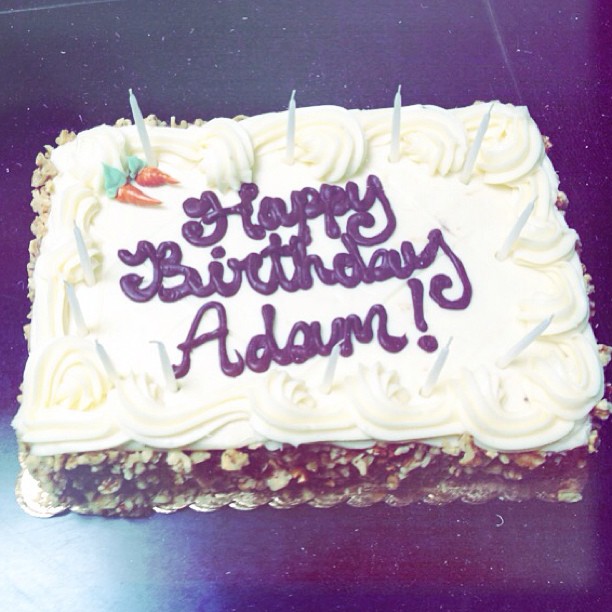 Happy
Birthday
Adam!